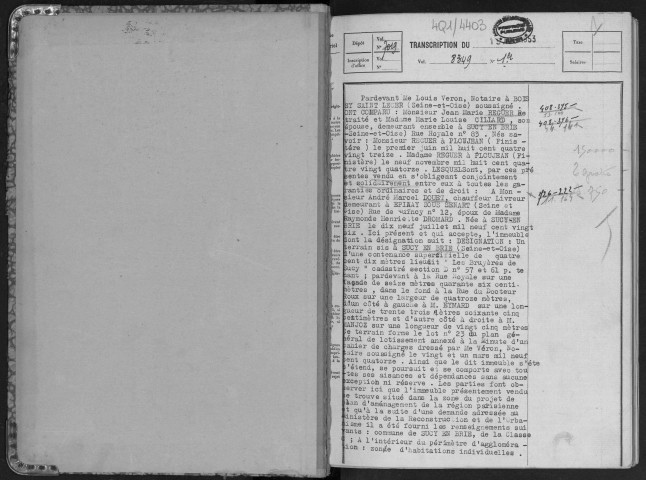 4Q1/4403
Dépôt
Vol.
N°
Inscription
d'office
TRANSCRIPTION DU
Vol. 8349 N° 1
Taxe :
Salaire :
Pardevant Me Louis Veron, Notaire à BOIS
SY SAINT LEGER (Seine-et-Oise) soussigné
ONT COMPARU : Monsieur Jean Marie REGUER Re
traité et Madame Marie Louise CILLARD, son
épouse, demeurant ensemble à SUCY EN BRIE
(Seine-et-Oise) Rue Royale n° 85. Nés sa-
voir : Monsieur REGUER à PLOUJEAN (Finis
tère) le premier juin mil huit cent quatre
vingt treize. Madame REGUER à PLOUJEAN (Fi
nistère) le neuf novembre mil huit cent qua
tre vingt quatorze. LESQUELSont, par ces pré
sentes vendu en s'obligeant conjointement
et solidairement entre eux à toutes les ga-
ranties ordinaires et de droit : A Mon-
sieur André Marcel, chauffeur Livreur
demeurant à EPINAY SOUS SENART (Seine et
Oise) Rue de n° 12, époux de Madame
Raymonde Henriette DROMARD. Né à SUCY-EN
BRIE le dix neuf juillet mil neuf cent vingt
six. Ici présent et qui accepte, l'immeuble
dont la désignation suit : DESIGNATION : Un
terrain sis à SUCY EN BRIE (Seine-et-Oise)
d'une contenance superficielle de quatre
cent dix mètres lieudit " Les Bruyères de
Sucy " cadastré section D n° 57 et 61 p. te
nant ; pardevant à la Rue Royale sur une
façade de seize mètres quarante six centi-
mètres, dans le fond à la Rue du Docteur
Roux sur une largeur de quatroze mètres,
d'un côté à gauche à M. EYNARD sur une lon-
gueur de trente trois mètres soixante cinq
centimètres et d'autre côté à droite à M.
MANJOZ sur une longueur de vingt cinq mètres
Le terrain forme le lot n° 23 du plan gé-
néral de lotissement annexé à la Minute d'un
cahier de charges dressé par Me Véron, No-
taire soussigné le vingt et un mars mil neuf
cent quatorze. Ainsi que le dit immeuble s'éte
s'étend, se poursuit et se comporte avec tou
tes ses aisances et dépendances sans aucune
exception ni réserve. Les parties font ob-
server ici que l'immeuble présentement vendu
se trouve situé dans la zone du projet de
plan d'aménagement de la région parisienne
et qu'à la suite d'une demande adressée au
Ministère de la Reconstruction et de l'Urba-
nisme il a été fourni les renseignements sui
vants : commune de SUCY EN BRIE, de la Classe
; A l'intérieur du périmètre d'aggloméra-
tion : zonée d'habitations individuelles.